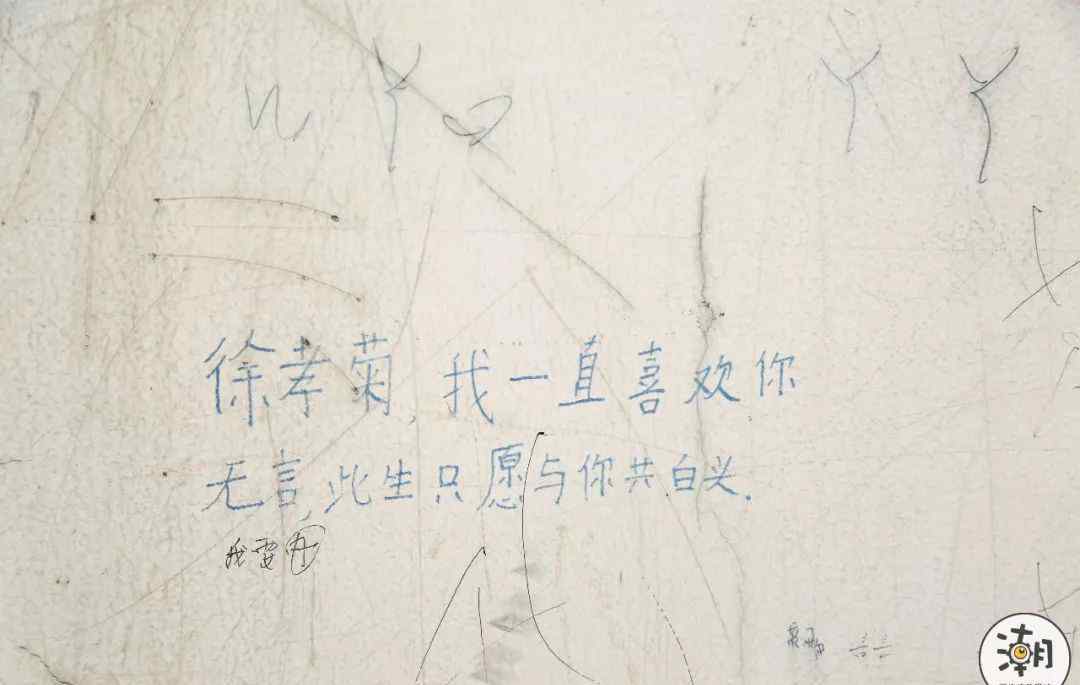 徐孝菊,我一直喜欢你
无言,此生只愿与你共白头.
我要
潮